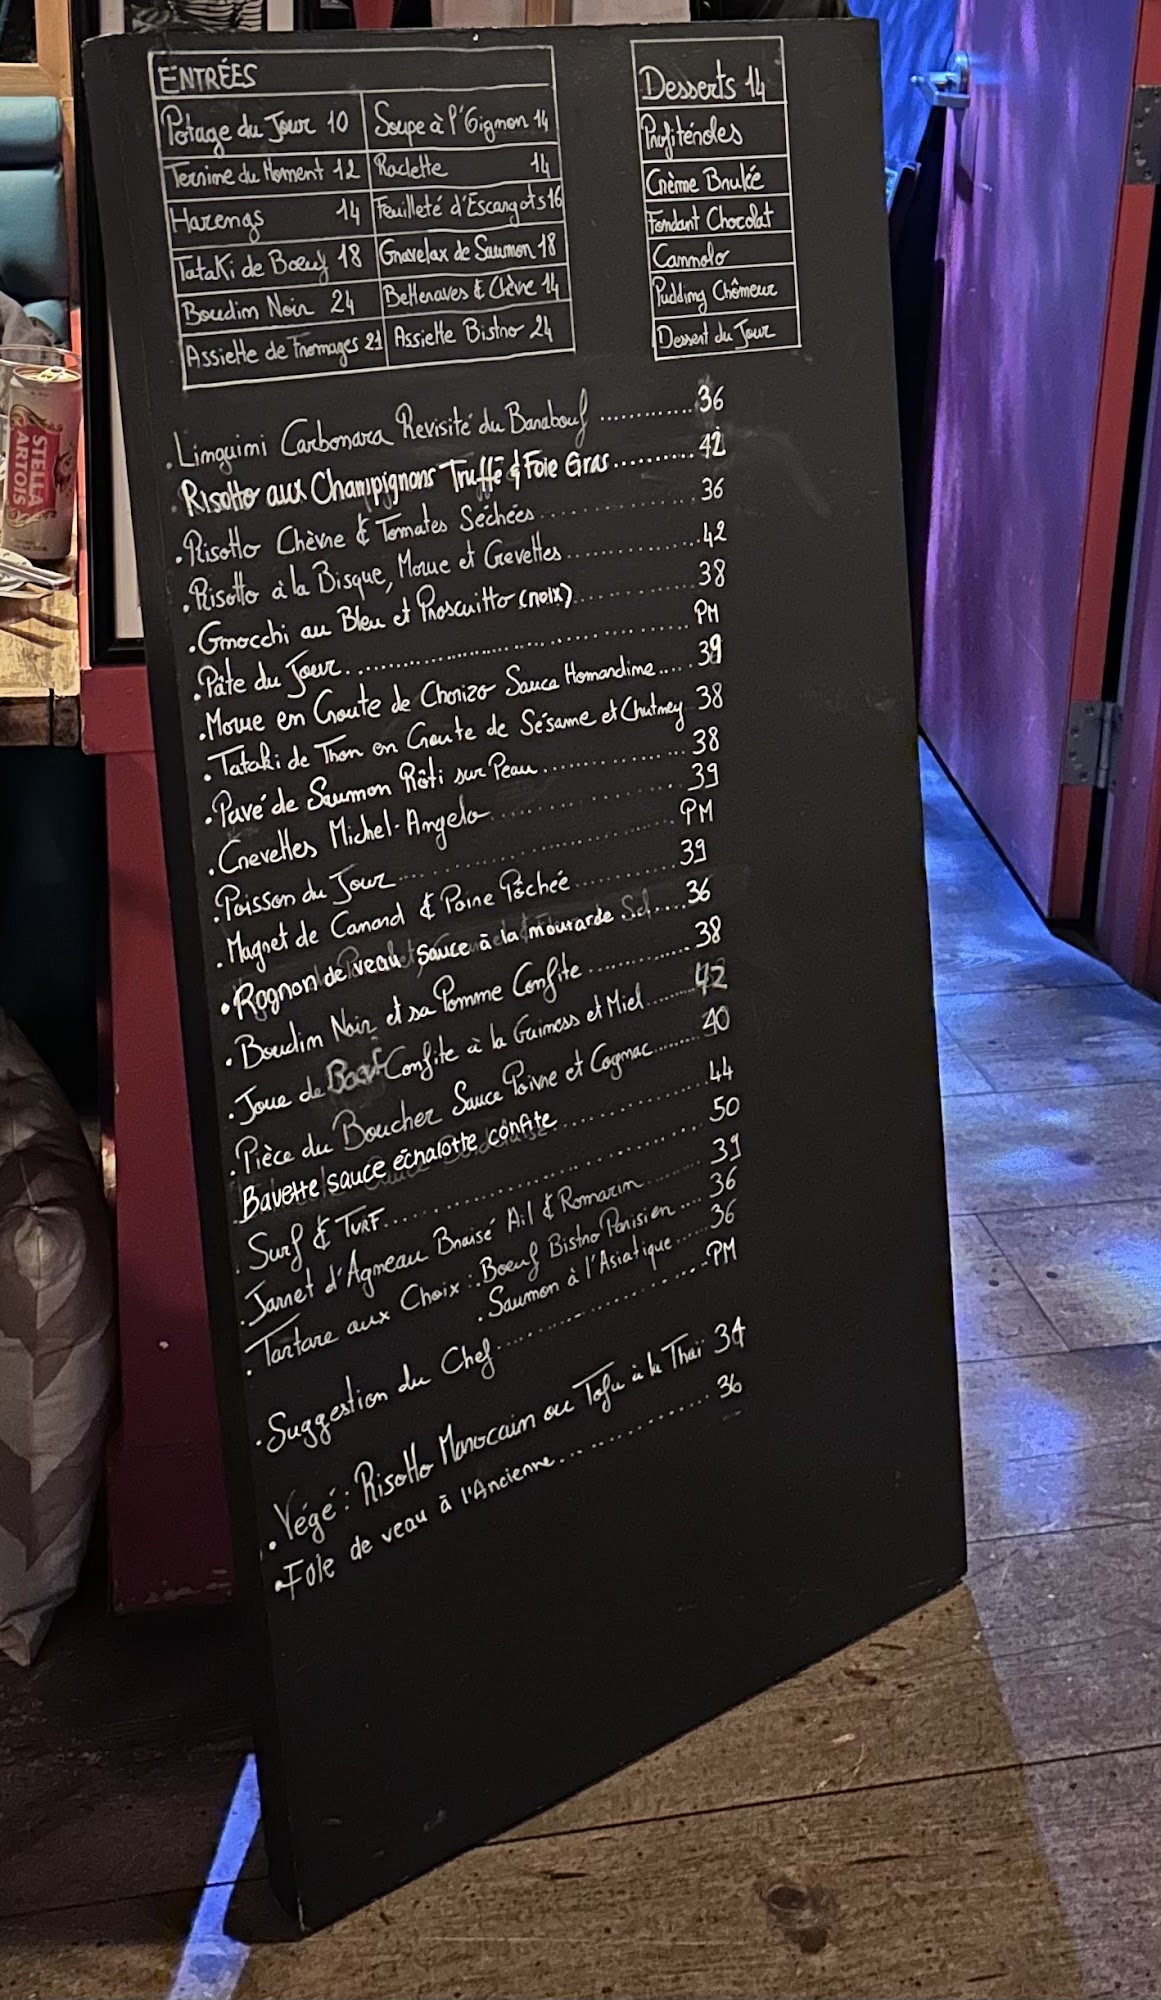 ENTRÉES
Potage du Jour 10
Soupe à l'Oignon 14
Terrine du Moment 12
Raclette 14
Harengs 14
Feuilleté d'Escargots 16
Tataki de Boeuf 18
Gravelax de Saumon 18
Boudin Noir 24
Betteraves & Chèvre 14
Assiette de Fromages 21
Assiette Bistro 24
Desserts 14
Profiteroles
Crème Brulée
Fondant Chocolat
Cannolo
Pudding Chômeur
Dessert du Jour
. Linguini Carbonara Revisité du Barabouf ............. 36
. Risotto aux Champignons Truffé & Foie Gras .......... 42
. Risotto Chèvre & Tomates Séchées ............... 36
. Risotto à la Bisque, Morue et Crevettes ............... 42
. Gnocchi au Bleu et Proscuitto (noix) ............ 38
. Pâte du Jour ................................ PM
. Morue en Croute de Chorizo Sauce Homardine ..... 39
. Tataki de Thon en Croute de Sésame et Chutney 38
. Pavé de Saumon Rôti sur Peau ............... 38
. Crevettes Michel-Angelo .................... 39
. Poisson du Jour .......................... PM
. Magret de Canard & Poire Pochée ............ 39
. Rognon de veau sauce à la moutarde .... 36
. Boudin Noir et sa Pomme Confite ............ 38
. Joue de Boeuf Confite à la Guiness et Miel ........ 42
. Pièce du Boucher Sauce Poivre et Cognac ........ 40
Bavette sauce échalotte confite ............... 44
. Surf & Turf ............................. 50
. Jarret d'Agneau Braisé Ail & Romarin ......... 39
. Tartare aux Choix : . Boeuf Bistro Parisien .... 36
. Saumon à l'Asiatique ..... 36
. Suggestion du Chef ....................... PM
. Végé : Risotto Marocain ou Tofu à la Thaï 34
. Foie de veau à l'Ancienne ................. 36
STELLA
ARTOIS